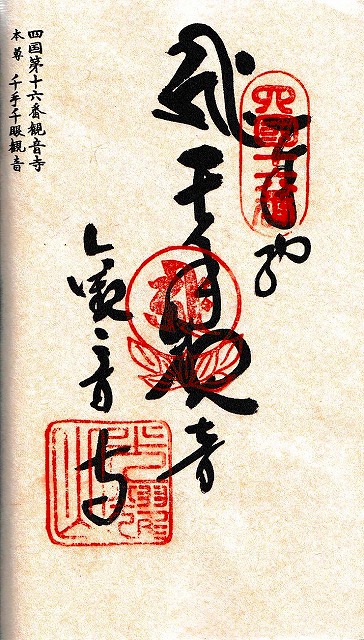 四国第十六番観音寺
本尊 千手千眼観音
奉納
千手観音
観音寺